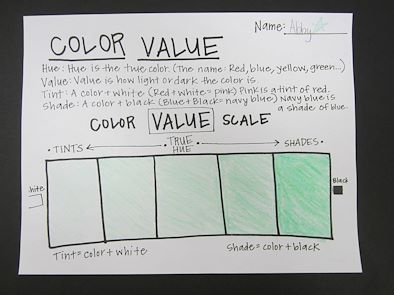 Name: Abby
COLOR VALUE
Hue: Hue is the true color. (The name: Red, blue, yellow, green...)
Value: Value is how light or dark the color is.
Tint: A color + white (Red + white = pink) Pink is a tint of red.
Shade: A color + black (Blue + Black = navy blue) Navy blue is
a shade of blue.
COLOR VALUE SCALE
TINTS TRUE HUE SHADES
hite
Black
Tint = color + white
Shade = color + black